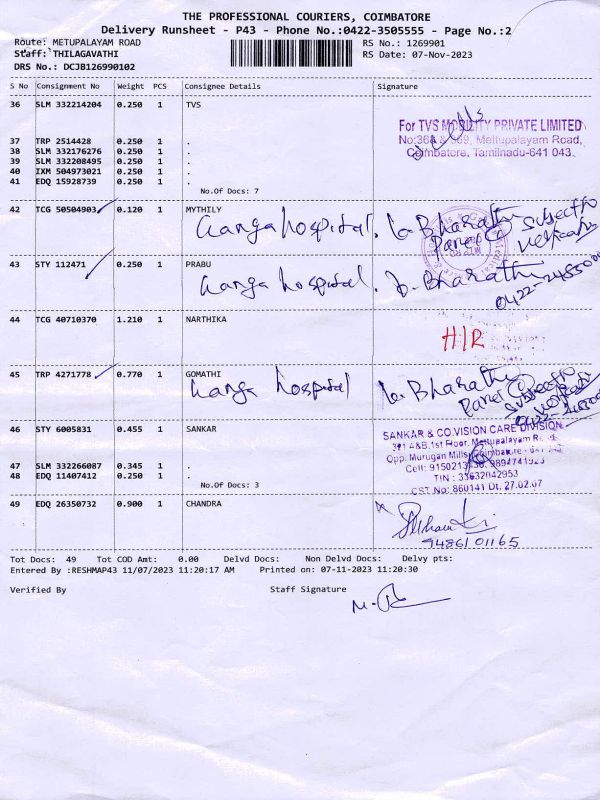 THE PROFESSIONAL COURIERS, COIMBATORE
Delivery Runsheet - P43 - Phone No.:0422-3505555 - Page No.:2
Route: METUPALAYAM ROAD RS No.: 1269901
Staff: THILAGAVATHI RS Date: 07-Nov-2023
DRS No.: DCJB126990102
S No Consignment No Weight PCS Consignee Details Signature
36 SLM 332214204 0.250 1 TVS
For TVS MOBILITY PRIVATE LIMITED
No:36A & 369, Mettupalayam Road,
Coimbatore, Tamilnadu-641 043.
37 TRP 2514428 0.250 1 .
38 SLM 332176276 0.250 1 .
39 SLM 332208495 0.250 1 .
40 IXM 504973021 0.250 1 .
41 EDQ 15928739 0.250 1 .
No.Of Docs: 7
42 TCG 50504903 0.120 1 MYTHILY
Ganga hospital. Bharathi
43 STY 112471 0.250 1 PRABU
Ganga hospital. Bharathi
44 TCG 40710370 1.210 1 NARTHIKA
H/R
45 TRP 4271778 0.770 1 GOMATHI
Ganga hospital Bharathi
46 STY 6005831 0.455 1 SANKAR
SANKAR & CO.VISION CARE DIVISION
391 A&B,1st Floor, Mettupalayam
Opp: Murugan Mills, Coimbatore -
TIN : 33632042953
CST No: 860141 Dt. 27.02.07
47 SLM 332266087 0.345 1 .
48 EDQ 11407412 0.250 1 .
No.Of Docs: 3
49 EDQ 26350732 0.900 1 CHANDRA
9486101165
Tot Docs: 49 Tot COD Amt: 0.00 Delvd Docs: Non Delvd Docs: Delvy pts:
Entered By :RESHMAP43 11/07/2023 11:20:17 AM Printed on: 07-11-2023 11:20:30
Verified By Staff Signature